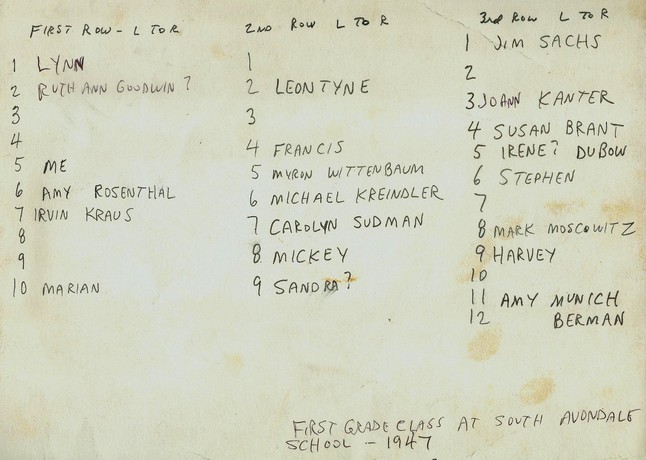 FIRST ROW - L TO R
1 LYNN
2 RUTH ANN GOODWIN?
3
4
5 ME
6 AMY ROSENTHAL
7 IRVIN KRAUS
8
9
10 MARIAN
2ND ROW L TO R
1
2 LEONTYNE
3
4 FRANCIS
5 MYRON WITTENBAUM
6 MICHAEL KREINDLER
7 CAROLYN SUDMAN
8 MICKEY
9 SANDRA?
3rd ROW L TO R
1 JIM SACHS
2
3 JOANN KANTER
4 SUSAN BRANT
5 IRENE? DUBOW
6 STEPHEN
7
8 MARK MOSCOWITZ
9 HARVEY
10
11 AMY MUNICH
12 BERMAN
FIRST GRADE CLASS AT SOUTH AVONDALE
SCHOOL - 1947